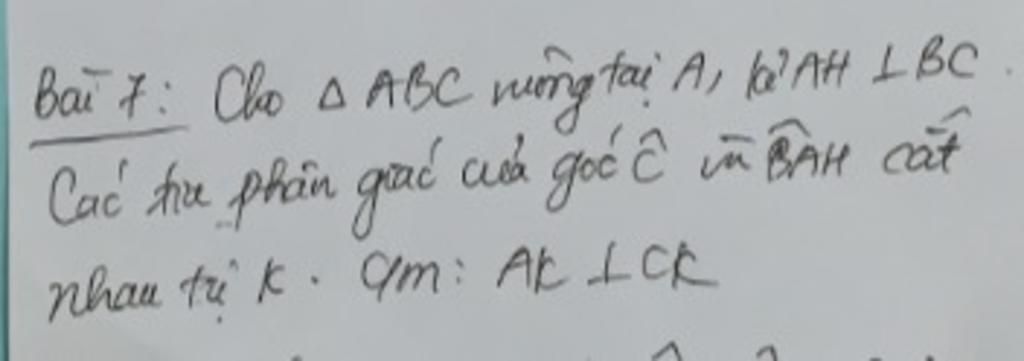 Bài 7: Cho △ ABC vuông tại A, kẻ AH ⊥ BC.
Các tia phân giác của góc Ĉ và B̂AH cắt
nhau tại K. CM: AK ⊥ CK